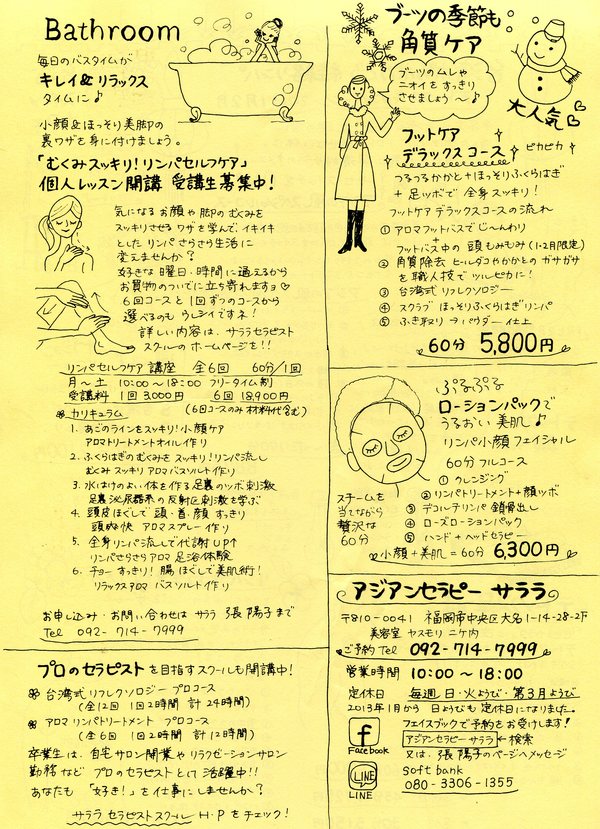 Bathroom
毎日のバスタイムが
キレイ&リラックス
タイムに♪
小顔&ほっそり美脚の
裏ワザを身に付けましょう。
「むくみスッキリ!リンパセルフケア」
個人レッスン開講 受講生募集中!
気になるお顔や脚のむくみを
スッキリさせるワザを学んで、イキイキ
としたリンパさらさら生活に
変えませんか?
好きな曜日・時間に通えるから
お買物のついでに立ち寄れますョ♡
6回コースと1回ずつのコースから
選べるのもウレシイですネ!
詳しい内容は、サララセラピスト
スクールのホームページを!!
リンパセルフケア講座 全6回 60分/1回
月〜土 10:00〜18:00 フリータイム制
受講料 1回 3,000円 6回 18,900円
(6回コースのみ材料代含む)
カリキュラム
1. あごのラインをスッキリ!小顔ケア
アロマトリートメントオイル作り
2. ふくらはぎのむくみをスッキリ!リンパ流し
むくみスッキリアロマバスソルト作り
3. 水はけのよい体を作る足裏のツボ刺激
足裏泌尿器系の反射区刺激を学ぶ
4. 頭皮ほぐしで頭・首・顔すっきり
頭爽快 アロマスプレー作り
5. 全身リンパ流しで代謝UP↑
リンパさらさらアロマ足浴体験
6. チョーすっきり!腸ほぐしで美肌術!
リラックスアロマバスソルト作り
お申し込み・お問い合わせは サララ 張 陽子まで
Tel 092-714-7999
プロのセラピストを目指すスクールも開講中!
台湾式リフレクソロジー プロコース
(全12回 1回2時間 計24時間)
アロマリンパトリートメント プロコース
(全6回 1回2時間 計12時間)
卒業生は、自宅サロン開業やリラクゼーションサロン
勤務など プロのセラピストとして活躍中!!
あなたも「好き!」を仕事にしませんか?
サララセラピストスクール H・Pをチェック!
ブーツの季節も
角質ケア
ブーツのムレや
ニオイをすっきり
させましょう〜♪
大人気♡
フットケア
デラックスコース
ピカピカ
つるつるかかと+ほっそりふくらはぎ
+足ツボで全身スッキリ!
フットケアデラックスコースの流れ
① アロマフットバスでじ〜んわり
+
フットバス中の頭もみもみ(1・2月限定)
② 角質除去 ヒルダコやかかとのガサガサ
を職人技でツルピカに!
③ 台湾式リフレクソロジー
④ スクラブ ほっそりふくらはぎリンパ
⑤ ふき取り→パウダー仕上
60分 5,800円
ぷるぷる
ローションパックで
うるおい美肌♪
リンパ小顔フェイシャル
60分フルコース
① クレンジング
② リンパトリートメント+顔ツボ
③ デコルテリンパ 鎖骨出し
④ ローズローションパック
⑤ ハンド+ヘッドセラピー
スチームを
当てながら
贅沢な
60分
小顔+美肌=60分 6,300円
アジアンセラピー サララ
〒810-0041 福岡市中央区大名1-14-28-2F
美容室 ヤスモリ 二ケ内
ご予約Tel 092-714-7999
営業時間 10:00〜18:00
定休日 毎週日・火ようび・第3月ようび
2013年1月から 日ようびも定休日になりました。
フェイスブックで予約をお受けします!
f
Facebook
アジアンセラピーサララ ←検索
又は、張 陽子のページへメッセージ
LINE
LINE
softbank
080-3306-1355